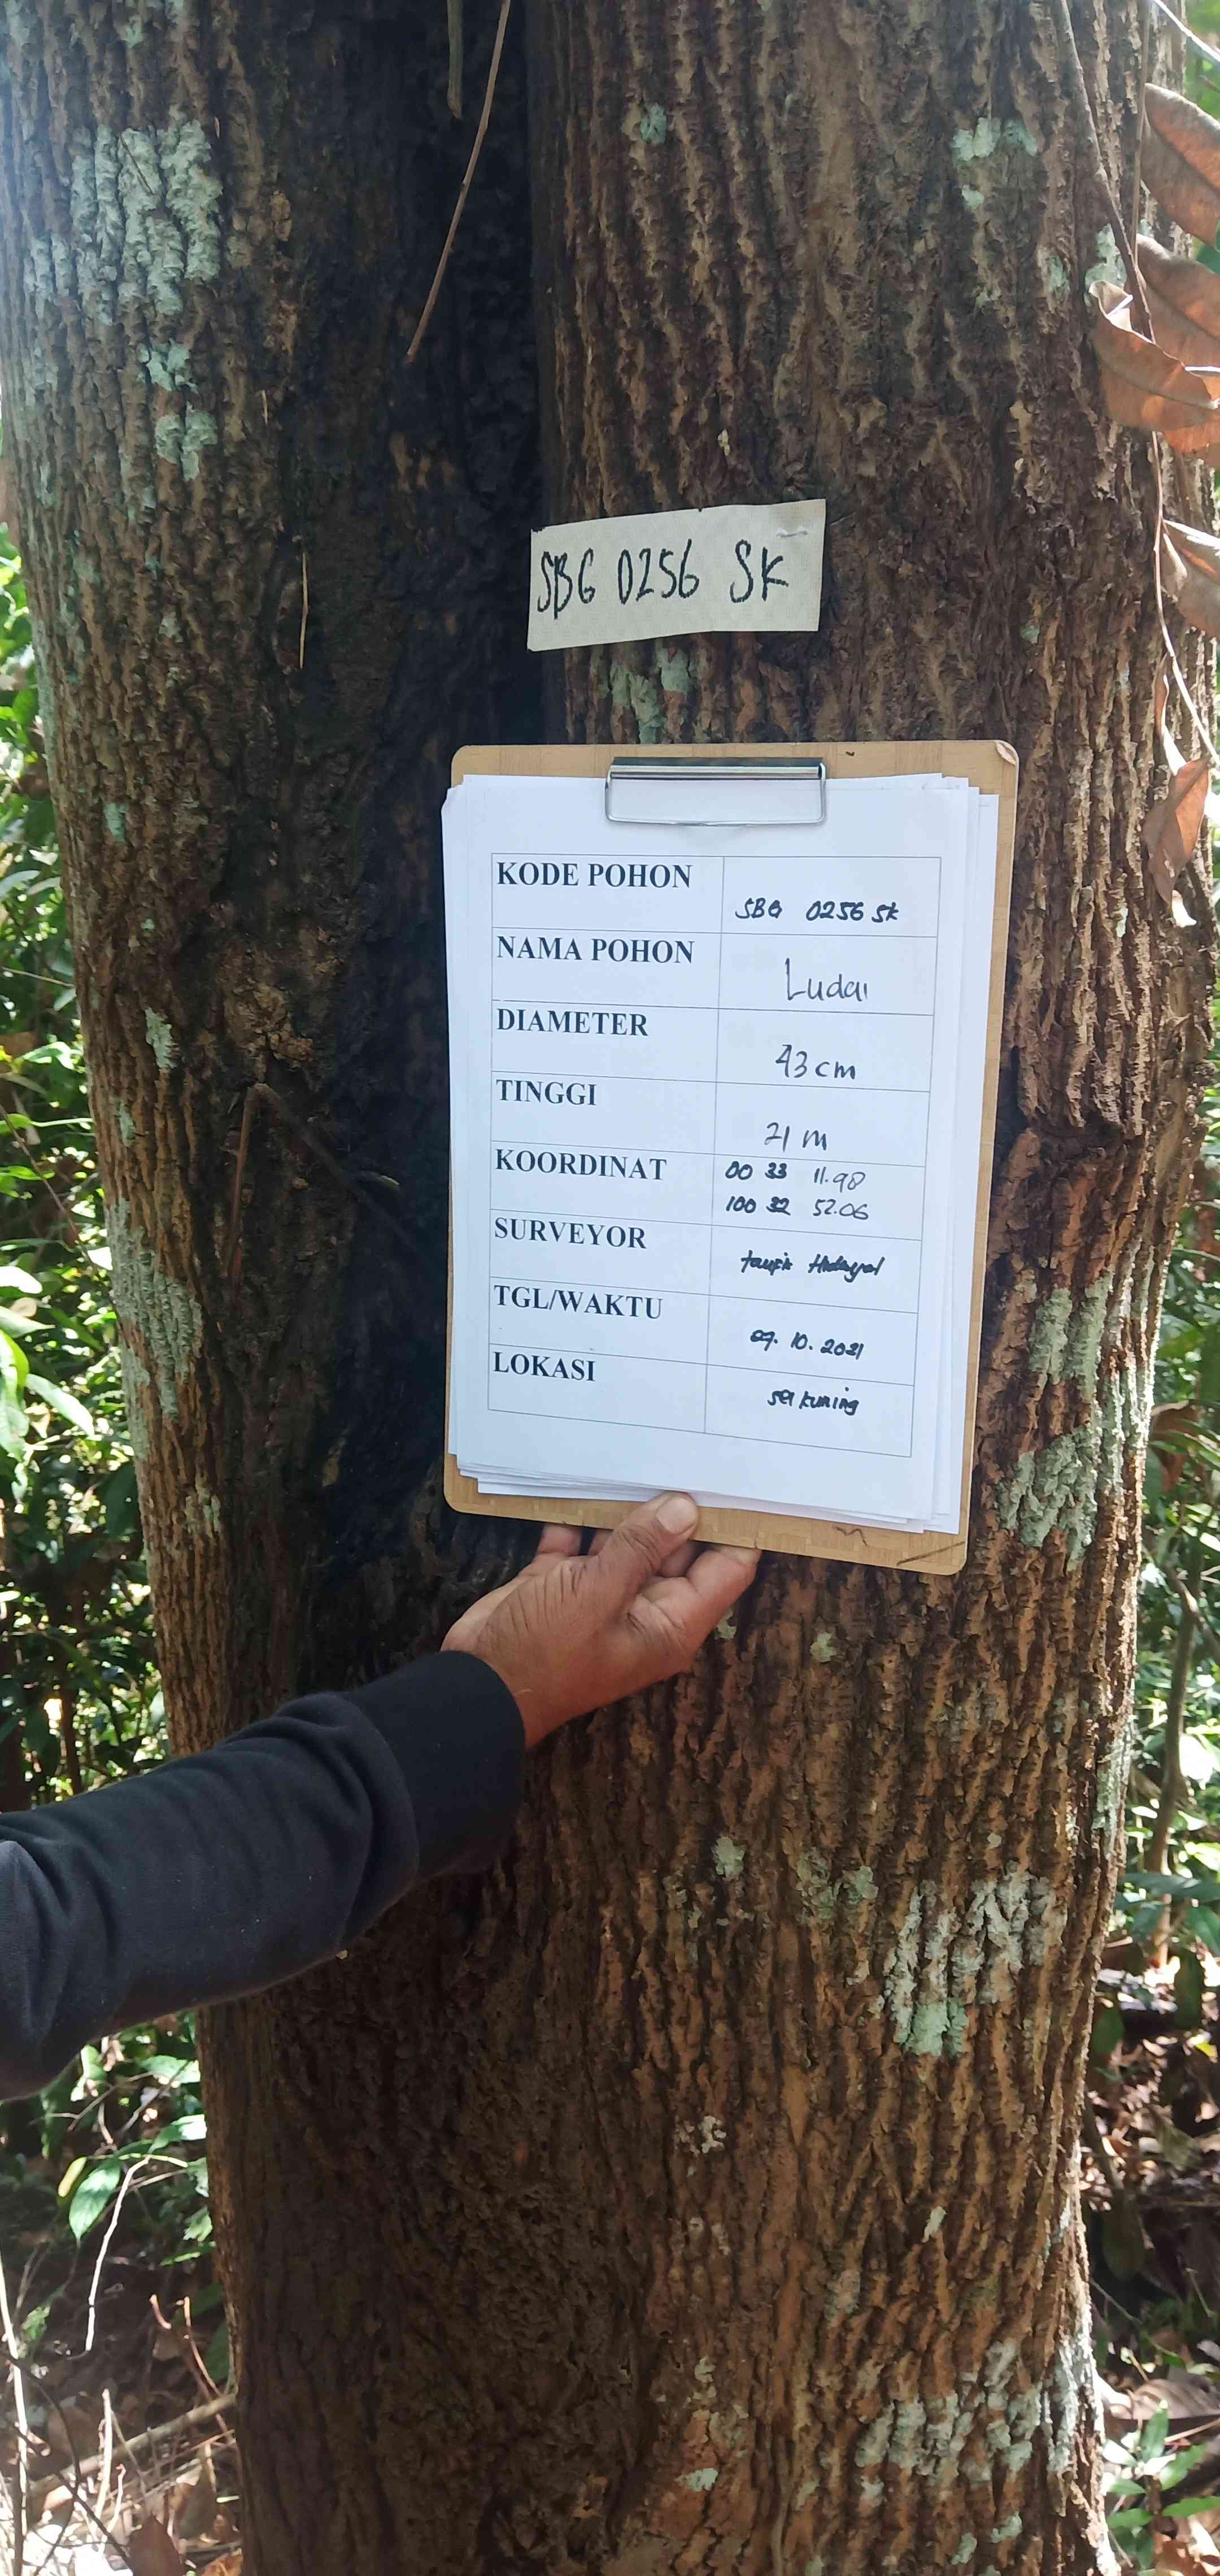 SBG 0256 SK
KODE POHON
SBG 0256 SK
NAMA POHON
Ludai
DIAMETER
43 cm
TINGGI
21 m
KOORDINAT
00 33 11.98
100 32 52.06
SURVEYOR
taufik Hidayat
TGL/WAKTU
09. 10. 2021
LOKASI
sei kuning